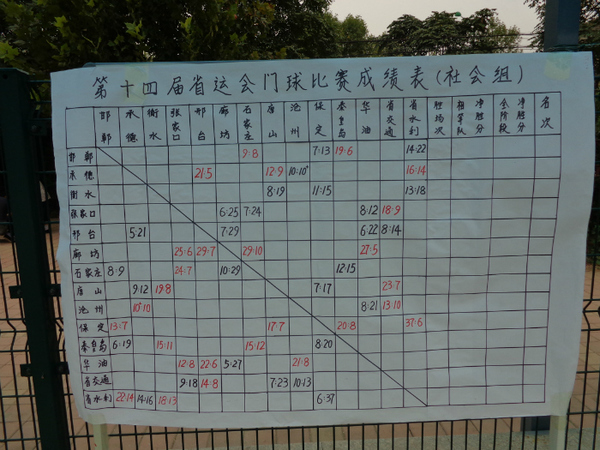 第十四届省运会门球比赛成绩表(社会组)
邯郸 承德 衡水 张家口 邢台 廊坊 石家庄 唐山 沧州 保定 秦皇岛 华油 省交通 省水利 胜场次 相关队 净胜分 全阶段 净胜分 名次
邯郸 9:8 7:13 19:6 14:22
承德 21:5 12:9 10:10+ 16:14
衡水 8:19 11:15 13:18
张家口 6:25 7:24 8:12 18:9
邢台 5:21 7:29 6:22 8:14
廊坊 25:6 29:7 29:10 27:5
石家庄 8:9 24:7 10:29 12:15
唐山 9:12 19:8 7:17 23:7
沧州 10:10 8:21 13:10
保定 13:7 17:7 20:8 37:6
秦皇岛 6:19 15:11 15:12 8:20
华油 12:8 22:6 5:27 21:8
省交通 9:18 14:8 7:23 10:13
省水利 22:14 14:16 18:13 6:37